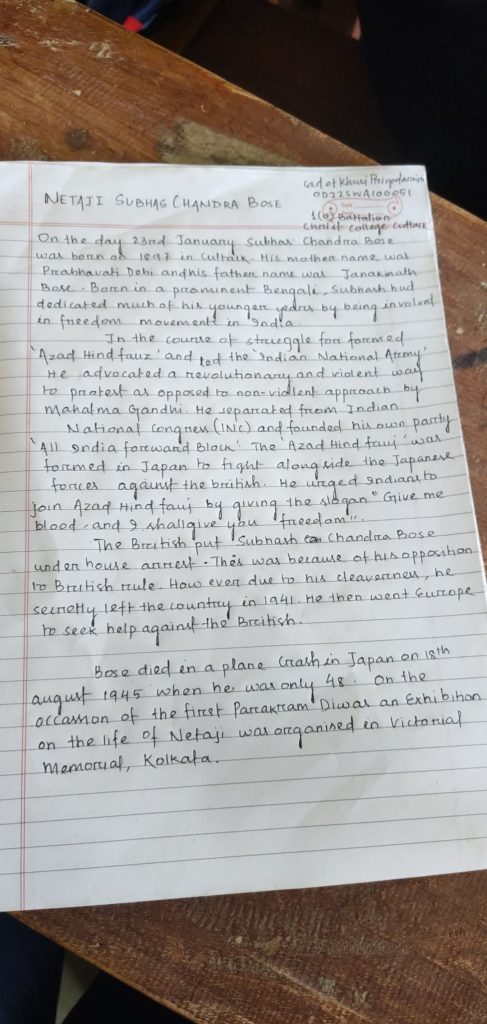 Cadet Khusi Priyadarsini
OD22SWA100051
NETAJI SUBHAS CHANDRA BOSE
1(O) Battalion
Christ College Cuttack
On the day 23rd January Subhas Chandra Bose
was born on 1897 in Cuttack. His mother name was
Prabhavati Debi and his father name was Janakinath
Bose. Born in a prominent Bengali, Subhash had
dedicated much of his younger years by being involved
in freedom movement in India.
In the course of struggle for formed
'Azad Hind fauz' and led the 'Indian National Army'
He advocated a revolutionary and violent way
to protest as opposed to non-violent approach by
Mahatma Gandhi. He separated from Indian
National Congress (INC) and founded his own party
'All India forward Block'. The 'Azad Hind fauj' was
formed in Japan to fight alongside the Japanese
forces against the british. He urged Indians to
join Azad Hind fauj by giving the slogan "Give me
blood and I shall give you freedom".
The British put Subhash Chandra Bose
under house arrest. This was because of his opposition
to British rule. How ever due to his cleaverness, he
secretly left the country in 1941. He then went Europe
to seek help against the British.
Bose died in a plane crash in Japan on 18th
august 1945 when he was only 48. On the
occassion of the first Parakram Diwas an Exhibition
on the life of Netaji was organised in Victorial
Memorial, Kolkata.